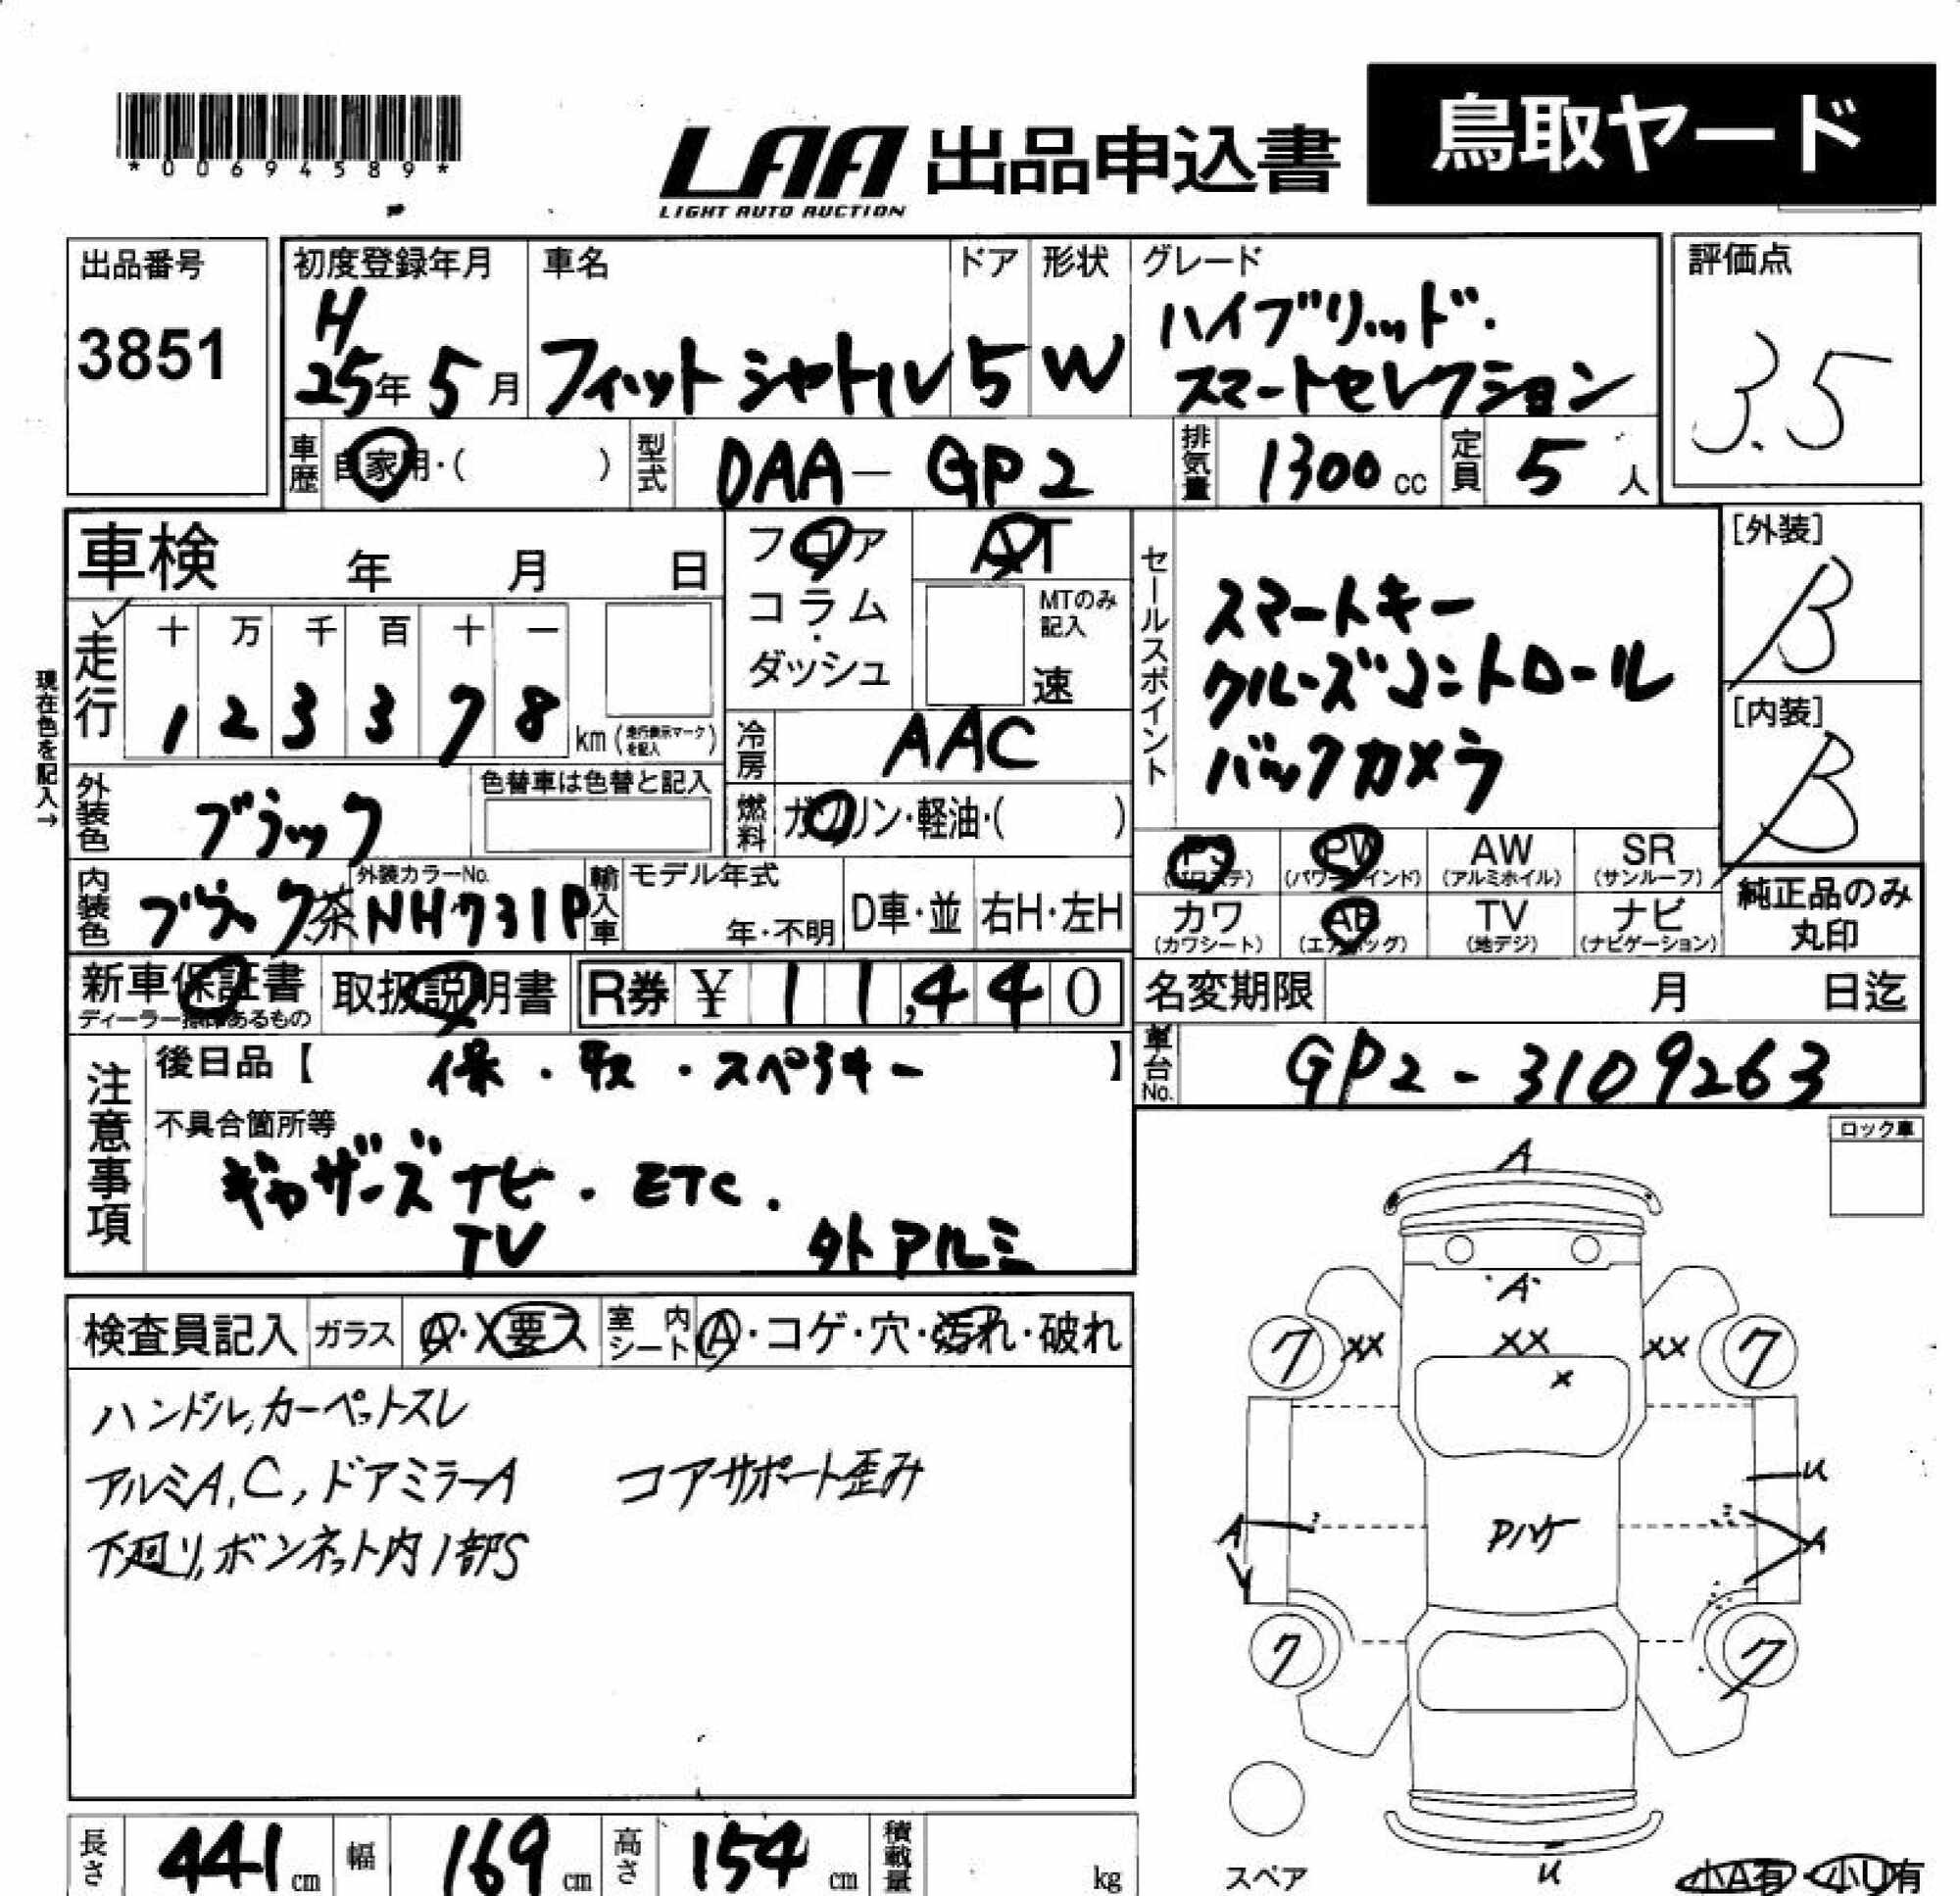 *00694589*
LAA
LIGHT AUTO AUCTION
出品申込書
鳥取ヤード
出品番号
3851
初度登録年月
H
25年 5月
車名
フィットシャトル
ドア
5
形状
W
グレード
ハイブリッド・
スマートセレクション
評価点
3.5
車歴
自家用・( )
型式
DAA-GP2
排気量
1300 cc
定員
5 人
車検 年 月 日
走行
十 万 千 百 十 一
1 2 3 3 7 8
km(走行表示マークを記入)
現在色を記入→
フロア
コラム
・
ダッシュ
AT
MTのみ
記入
速
冷房
AAC
燃料
ガソリン・軽油・( )
セールスポイント
スマートキー
クルーズコントロール
バックカメラ
[外装]
B
[内装]
B
外装色
ブラック
色替車は色替と記入
内装色
ブラック茶
外装カラーNo.
NH731P
輸入車
モデル年式
年・不明
D車・並
右H・左H
PS
(パワステ)
PW
(パワーウインド)
AW
(アルミホイル)
SR
(サンルーフ)
カワ
(カワシート)
AB
(エアバッグ)
TV
(地デジ)
ナビ
(ナビゲーション)
純正品のみ
丸印
新車保証書
ディーラー捺印あるもの
取扱説明書
R券 ¥ 11,440
名変期限 月 日迄
車台No.
GP2-3109263
注意事項
後日品【 保・取・スペアキー 】
不具合箇所等
ギャザーズナビ・ETC.
TV
外アルミ
ロック車
検査員記入
ガラス
A・X要ス
室内シート
A・コゲ・穴・汚れ・破れ
ハンドル,カーペットスレ
アルミA,C,ドアミラーA コアサポート歪み
下廻り,ボンネット内1部S
A
A
7 XX XX XX 7
X
U
A
A
7 7
U
スペア
小A有・小U有
長さ
441 cm
幅
169 cm
高さ
154 cm
積載量
kg